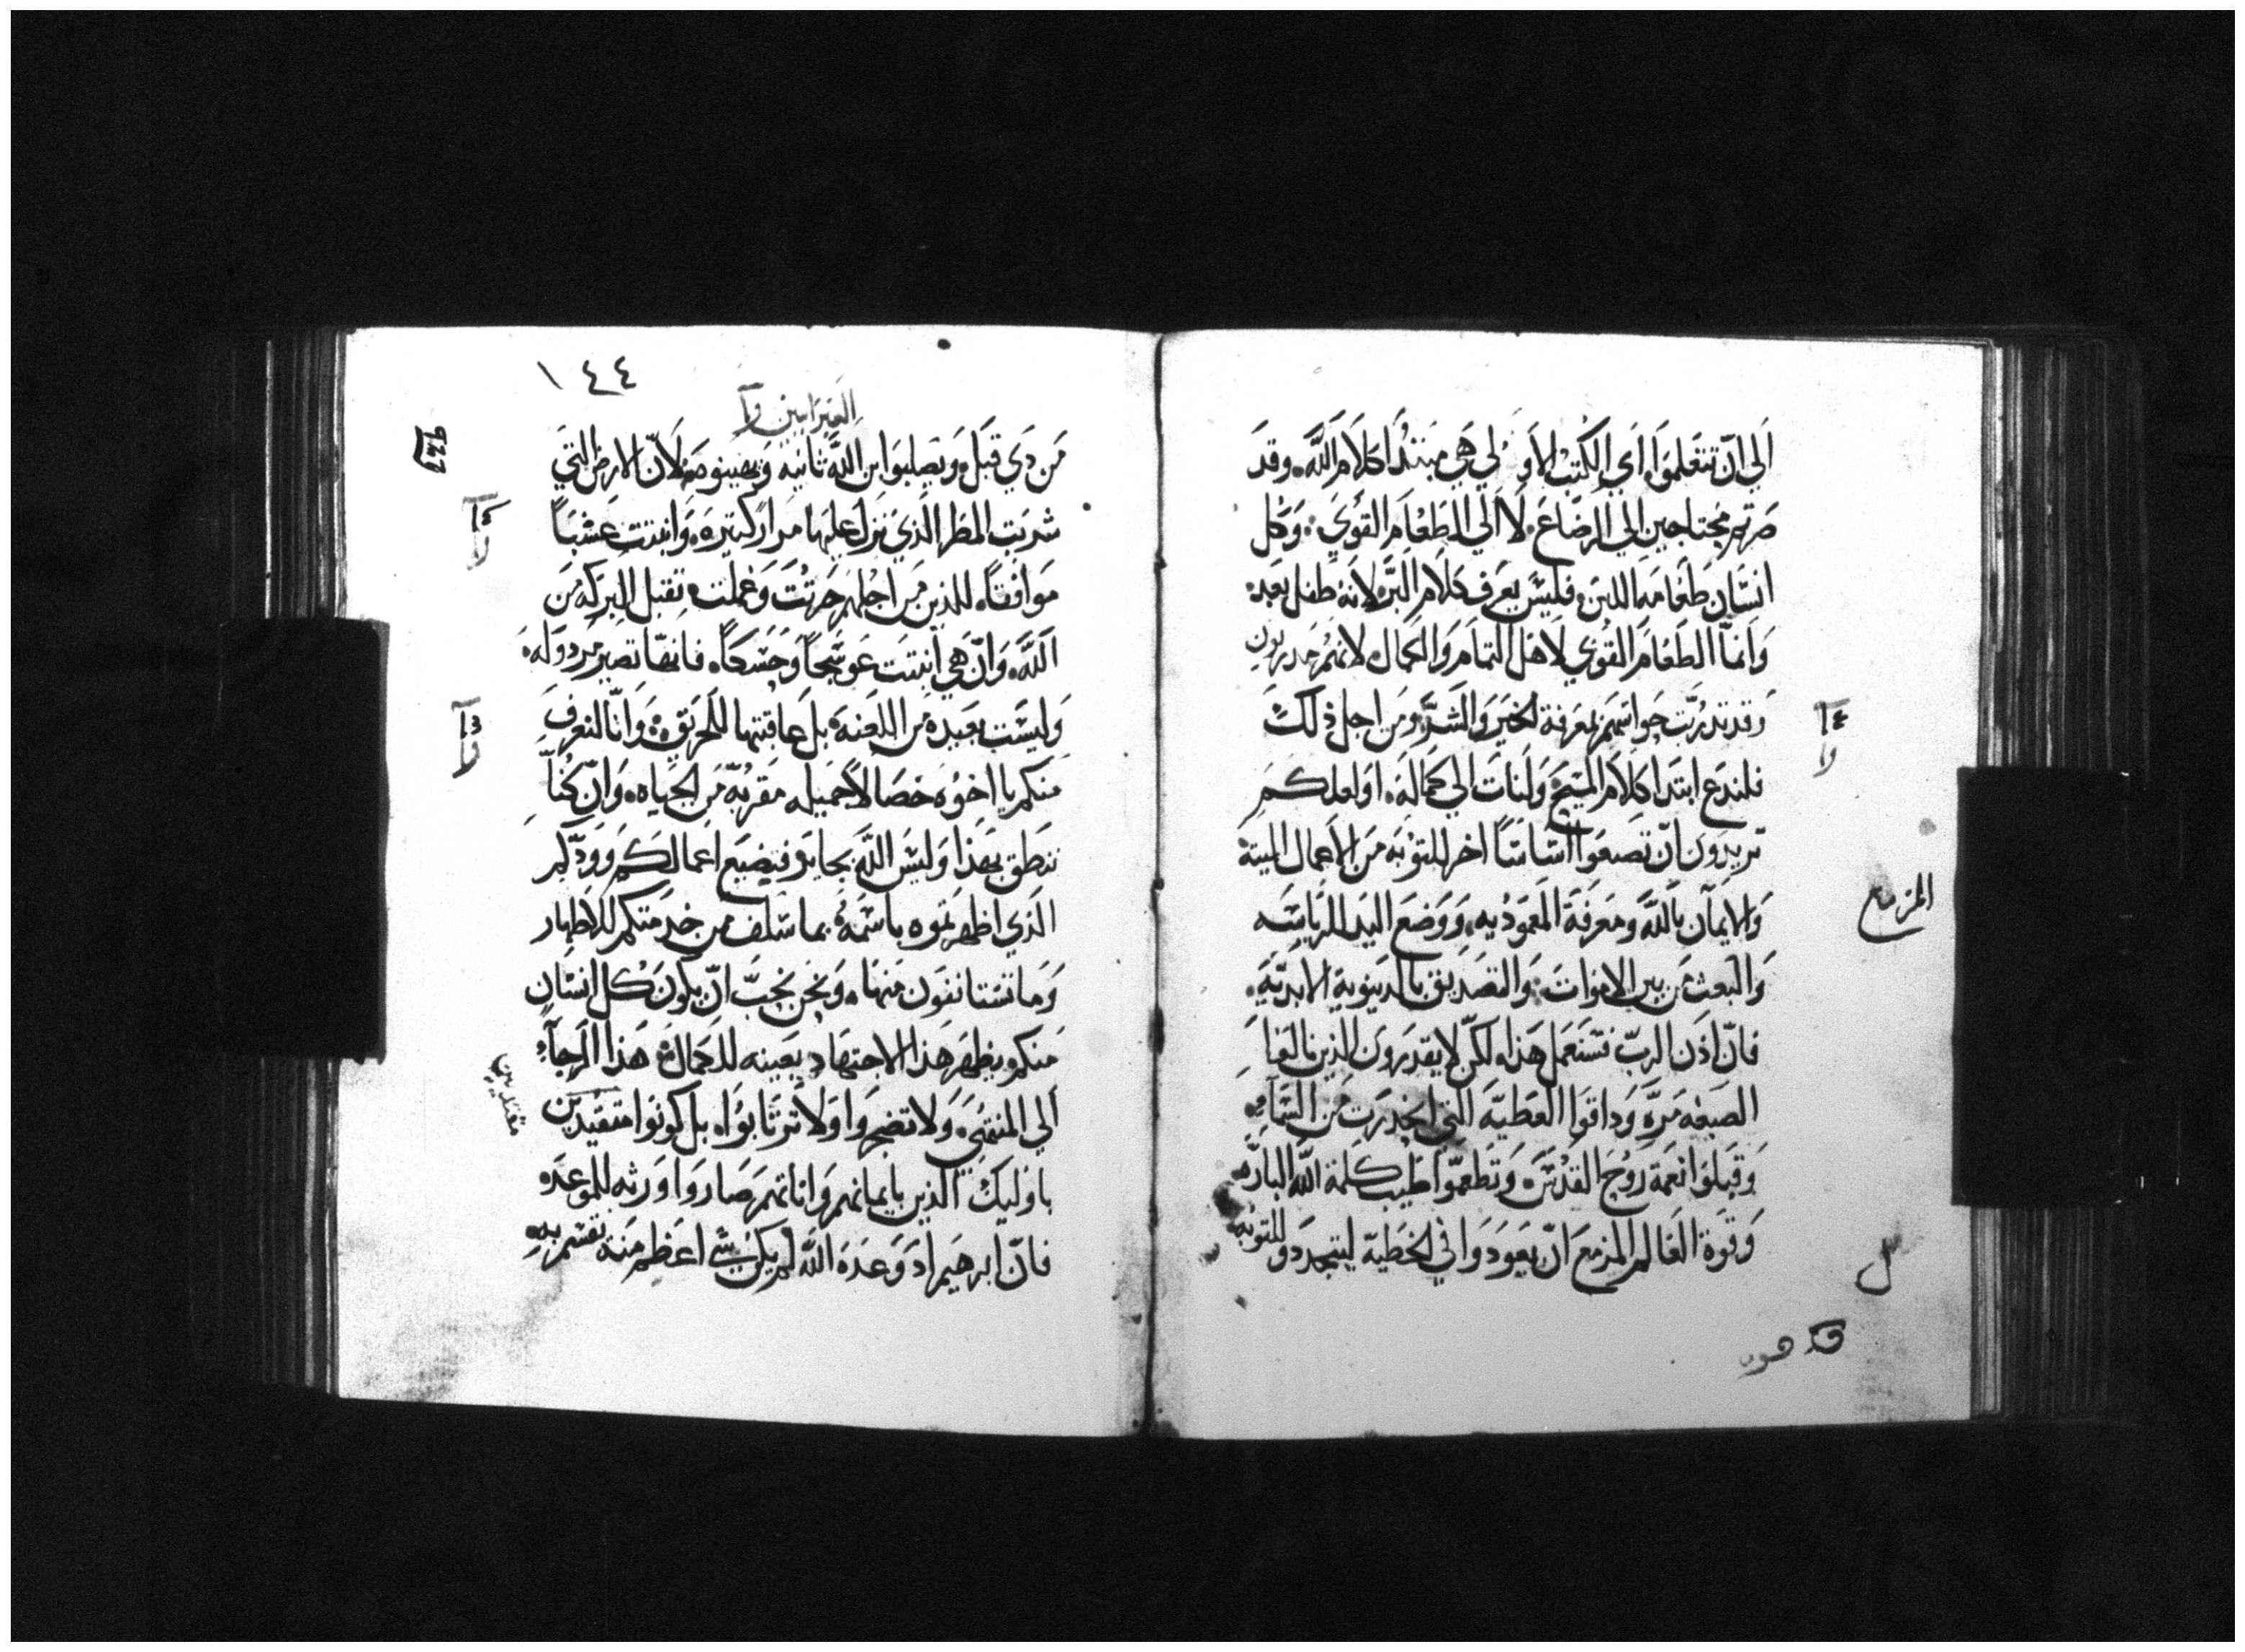 الي ان تتعلموا اي الكتب الاولي هي مبتدا كلام الله وقد
صرتم محتاجين الي الرضاع لا الي الطعام القوي وكل
انسان طعامه اللبن فليس يعرف كلام البر لانه طفل بعد
وانما الطعام القوي لاهل التمام والكمال لانهم مدربون
وقد تدربت حواسهم بمعرفة الخير والشر ومن اجل ذلك
فلندع ابتدا كلام المسيح ولنات الي كماله او لعلكم
تريدون ان تضعوا اساسا اخر للتوبه من الاعمال الميتة
والايمان بالله ومعرفة المعموديه ووضع اليد للرياسه
والبعث من بين الاموات والتصديق بالدينونة الابدية
فان اذن الرب فسنعمل هذا لكن لا يقدرون الذين نالوا
الصبغه مره وداقوا العطيه التي انحدرت من السماء
وقبلوا نعمة روح القدس وتطعموا طيب كلمة الله الباره
وقوة العالم المزمع ان يعودوا في الخطية ليتجددو للتوبه
المزمع
١٤٤
العبرانيين
من دي قبل ويصلبوا ابن الله ثانيه ويهينوه لان الارض التي
شربت المطر الذي نزل عليها مرارا كتيره وانبتت عشبا
موافقا للذين من اجلهم حرتت وعملت تقبل البركه من
الله وان هي انبتت عوسجا وحسكا فانها تصير مردوله
وليست بعيده من اللعنه بل عاقبتها للحريق وانا لنعرف
منكم يا اخوه خصالا جميله مقربه من الحياه وان كنا
ننطق بهذا وليس الله بجاير فيضيع اعمالكم وودكم
الذي اظهرتموه باسمه بما سلف من خدمتكم للاطهار
وما تستانفون منها ونحن نحب ان يكون كل انسان
منكم يظهر هذا الاجتهاد بعينه لكمال هذا الرجاء
الي المنتهي ولا تضجروا ولا ترتابوا بل كونوا متقيدين
باوليك الذين بايمانهم واناتهم صاروا ورثه للموعده
فان ابرهيم اد وعده الله لم يكن شي اعظم منه تقسم به